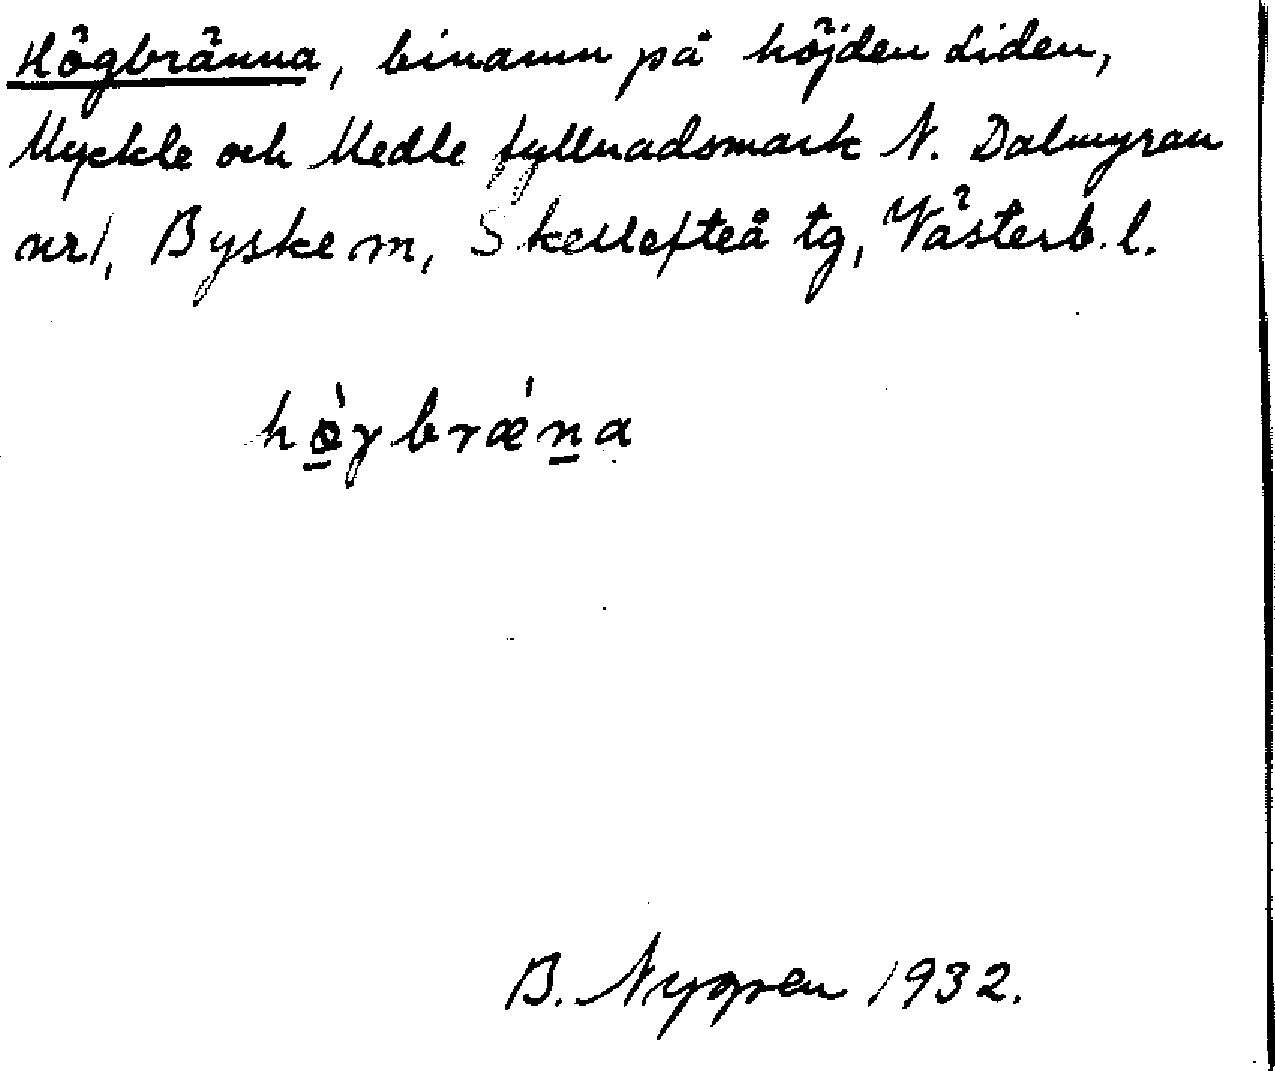 Högbränna, binamn på höjden Liden,
Myckle och Medle fyllnadsmark N. Dalmyran
nr 1, Byske m, Skellefteå tg, Västerb. l.
hø̱̀γbrǽṉa
B. Nygren 1932.